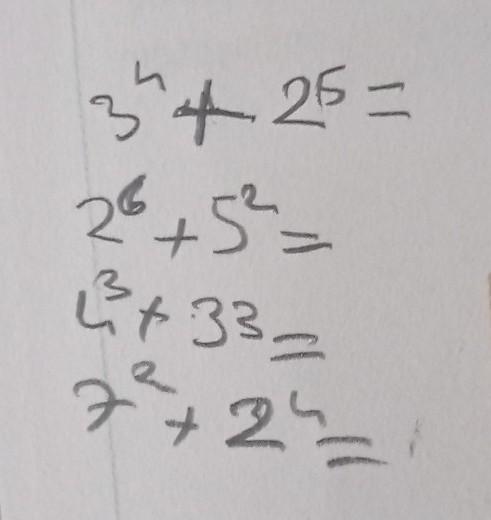 3⁴ + 2⁵ =
2⁶ + 5² =
4³ + 33 =
7² + 2⁴ =